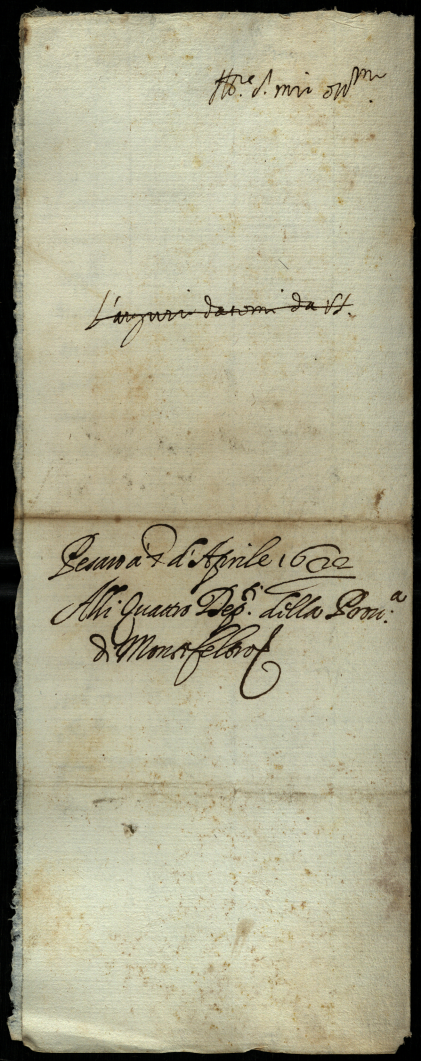 Ill.re S. mio oss.mo
L'augurii datomi da VS.
Pesaro a di d'Aprile 1622
Alli Quattro Dep.ti della Prou.a
di Montefeltro